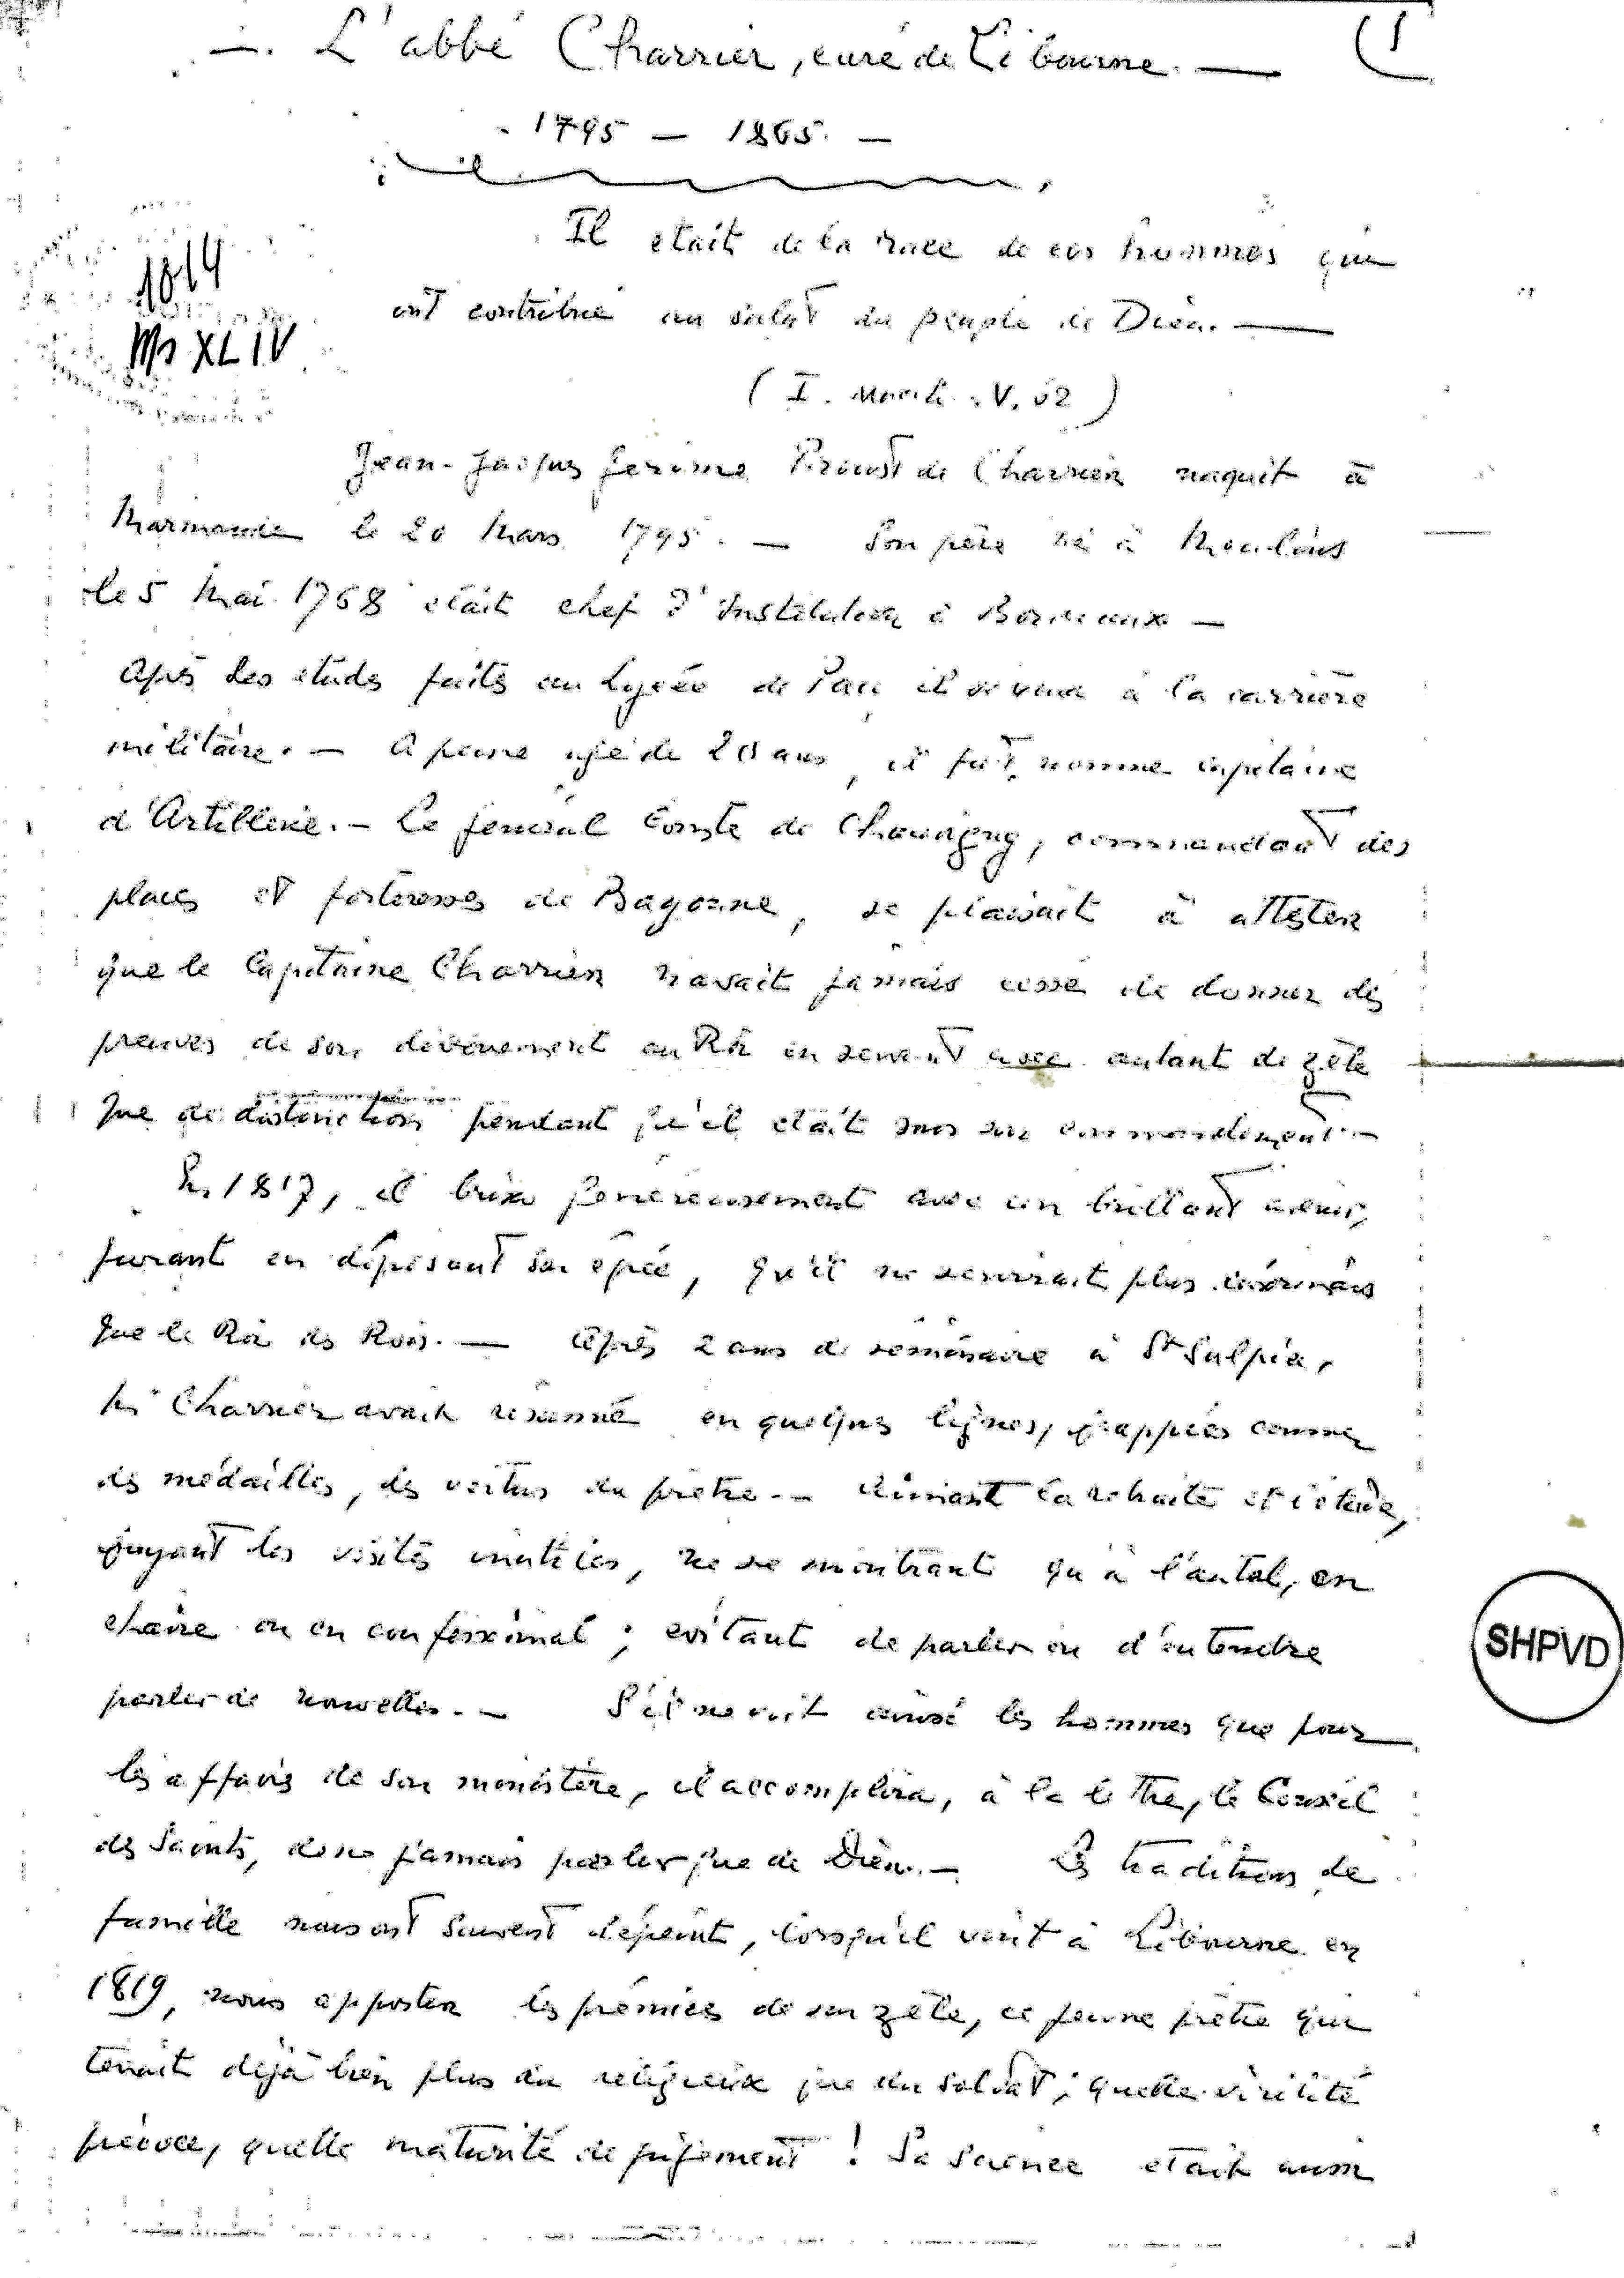 — . L'abbé Charrier, curé de Libourne. — 1
1795 — 1865. —
1814
Ms XLIV
Il etait de la race de ces hommes qui
ont contribué au salut du peuple de Dieu. —
(I. Macch. V. 62)
Jean-Jacques Jerôme Proust de Charrier naquit à
Marmande le 20 Mars 1795. — Son père né à Moulins
le 5 Mai 1768 etait chef d'Institution à Bordeaux —
Après des etudes faites au Lycée de Pau il se voua à la carrière
militaire. — A peine agé de 20 ans, il fut nommé capitaine
d'Artillerie. — Le général Comte de Chauvigny, commandant des
places et forteresses de Bayonne, se plaisait à attester
que le Capitaine Charrier n'avait jamais cessé de donner des
preuves de son dévouement au Roi en servant avec autant de zèle
que de distinction pendant qu'il etait sous son commandement —
En 1817, il brisa généreusement avec un brillant avenir,
jurant en déposant son épée, qu'il ne servirait plus désormais
que le Roi des Rois. — Après 2 ans de séminaire à St Sulpice,
Mr Charrier avait résumé en quelques lignes, frappées comme
des médailles, les vertus du prêtre. — Aimant la retraite et l'étude,
fuyant les visites inutiles, ne se montrant qu'à l'autel, en
chaire ou en confessional ; evitant de parler ou d'entendre
parler de nouvelles. — S'il ne voit les hommes que pour
les affaires de son ministère, il accomplira, à la lettre, le Conseil
des Saints, de ne jamais parler que de Dieu. — Les traditions de
famille nous ont souvent dépeint, lorsqu'il vint à Libourne en
1819, nous apporter les prémices de son zèle, ce jeune prêtre qui
tenait déjà bien plus du religieux que du soldat ; quelle virilité
précoce, quelle maturité de jugement ! Sa Science etait aussi
SHPVD